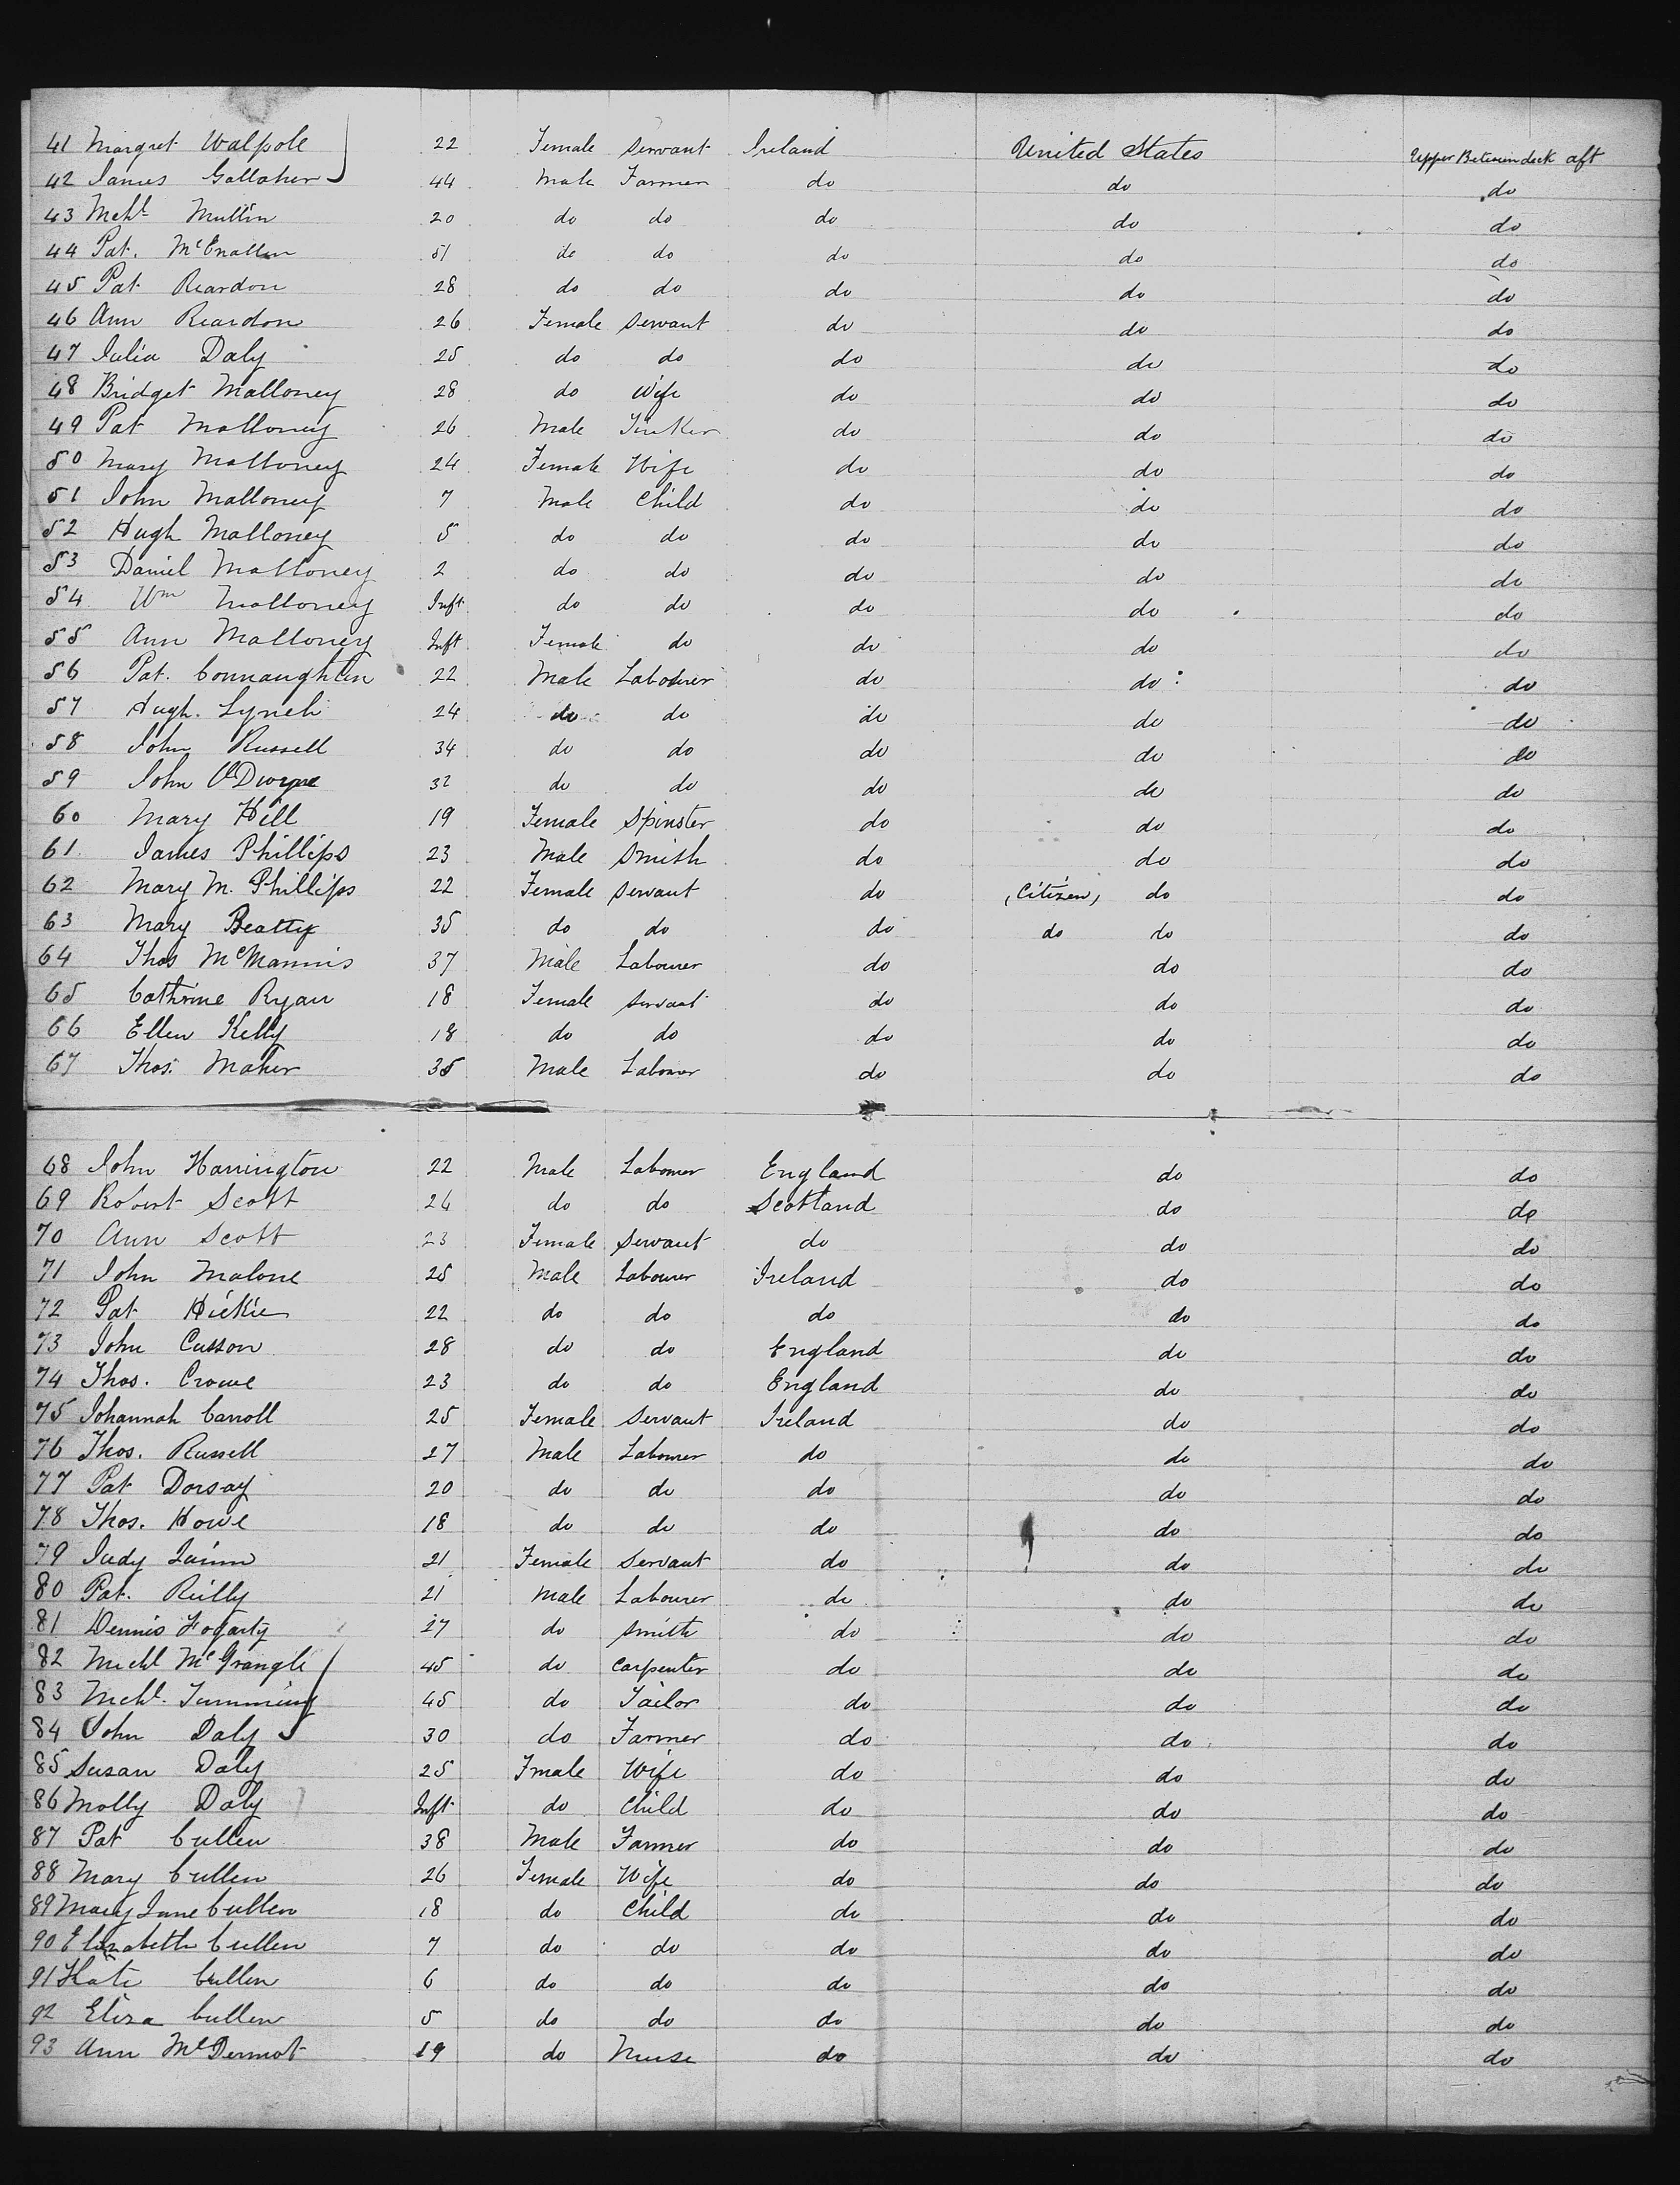 41 Margret Walpole 22 Female Servant Ireland United States Upper Betweendeck aft
42 James Gallaher 44 Male Farmer do do do
43 Mchl Mullin 20 do do do do do
44 Pat. 51 do do do do do
45 Pat Reardon 28 do do do do do
46 Ann Reardon 26 Female Servant do do do
47 Julia Daly 25 do do do do do
48 Bridget Malloney 28 do Wife do do do
49 Pat Malloney 26 Male Tinker do do do
50 Mary Malloney 24 Female Wife do do do
51 John Malloney 7 Male Child do do do
52 Hugh Malloney 5 do do do do do
53 Daniel Malloney 2 do do do do do
54 Wm Malloney Inft do do do do do
55 Ann Malloney Inft Female do do do do
56 Pat. Connaughten 22 Male Labourer do do do
57 Hugh. Lynch 24 do do do do do
58 John Russell 34 do do do do do
59 John 32 do do do do do
60 Mary Hill 19 Female Spinster do do do
61 James Phillips 23 Male Smith do do do
62 Mary M. Phillips 22 Female Servant do (Citizen) do do
63 Mary Beatty 35 do do do do do do
64 Thos McMannis 37 Male Labourer do do do
65 Cathrine Ryan 18 Female Servant do do do
66 Ellen Kelly 18 do do do do do
67 Thos. Maher 35 Male Labourer do do do
68 John Harrington 22 Male Labourer England do do
69 Robert Scott 24 do do Scotland do do
70 Ann Scott 23 Female Servant do do do
71 John Malone 25 Male Labourer Ireland do do
72 Pat Hickie 22 do do do do do
73 John Cusson 28 do do England do do
74 Thos. Crowe 23 do do England do do
75 Johannah Carroll 25 Female Servant Ireland do do
76 Thos. Russell 27 Male Labourer do do do
77 Pat Dorsay 20 do do do do do
78 Thos. Howe 18 do do do do do
79 Judy Quinn 21 Female Servant do do do
80 Pat. Reilly 21 Male Labourer do do do
81 Dennis Fogarty 27 do Smith do do do
82 Michl McGrangle 45 do Carpenter do do do
83 Mchl. 45 do Tailor do do do
84 John Daly 30 do Farmer do do do
85 Susan Daly 25 Fmale Wife do do do
86 Molly Daly Inft. do Child do do do
87 Pat Cullen 38 Male Farmer do do do
88 Mary Cullen 26 Female Wife do do do
89 Mary Jane Cullen 18 do Child do do do
90 Elizabeth Cullen 7 do do do do do
91 Kate Cullen 6 do do do do do
92 Eliza Cullen 5 do do do do do
93 Ann McDermot 19 do Nurse do do do